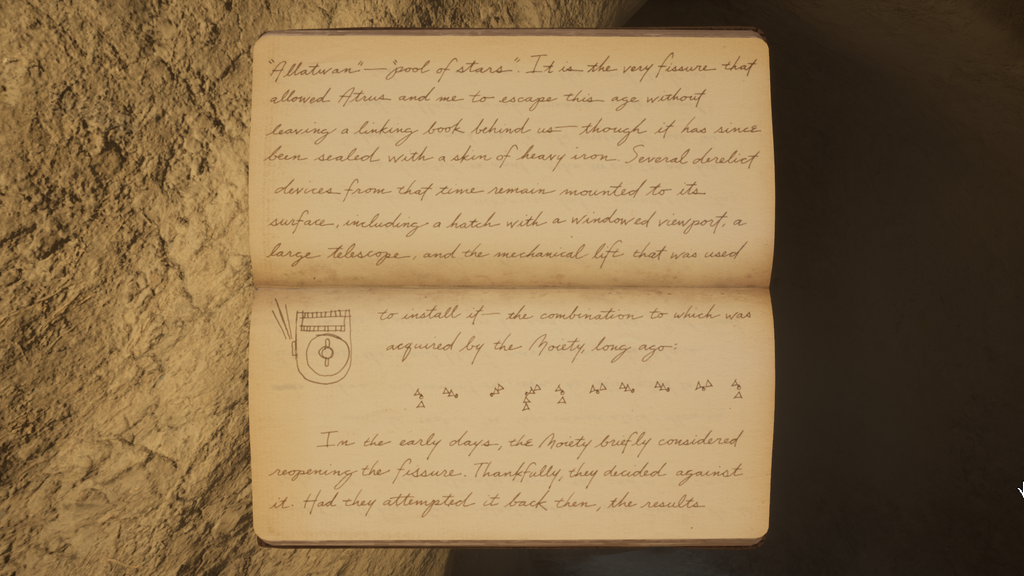 "Allatwan" — "pool of stars". It is the very fissure that
allowed Atrus and me to escape this age without
leaving a linking book behind us — though it has since
been sealed with a skin of heavy iron. Several derelict
devices from that time remain mounted to its
surface, including a hatch with a windowed viewport, a
large telescope, and the mechanical lift that was used
to install it — the combination to which was
acquired by the Moiety, long ago:
In the early days, the Moiety briefly considered
reopening the fissure. Thankfully, they decided against
it. Had they attempted it back then, the results